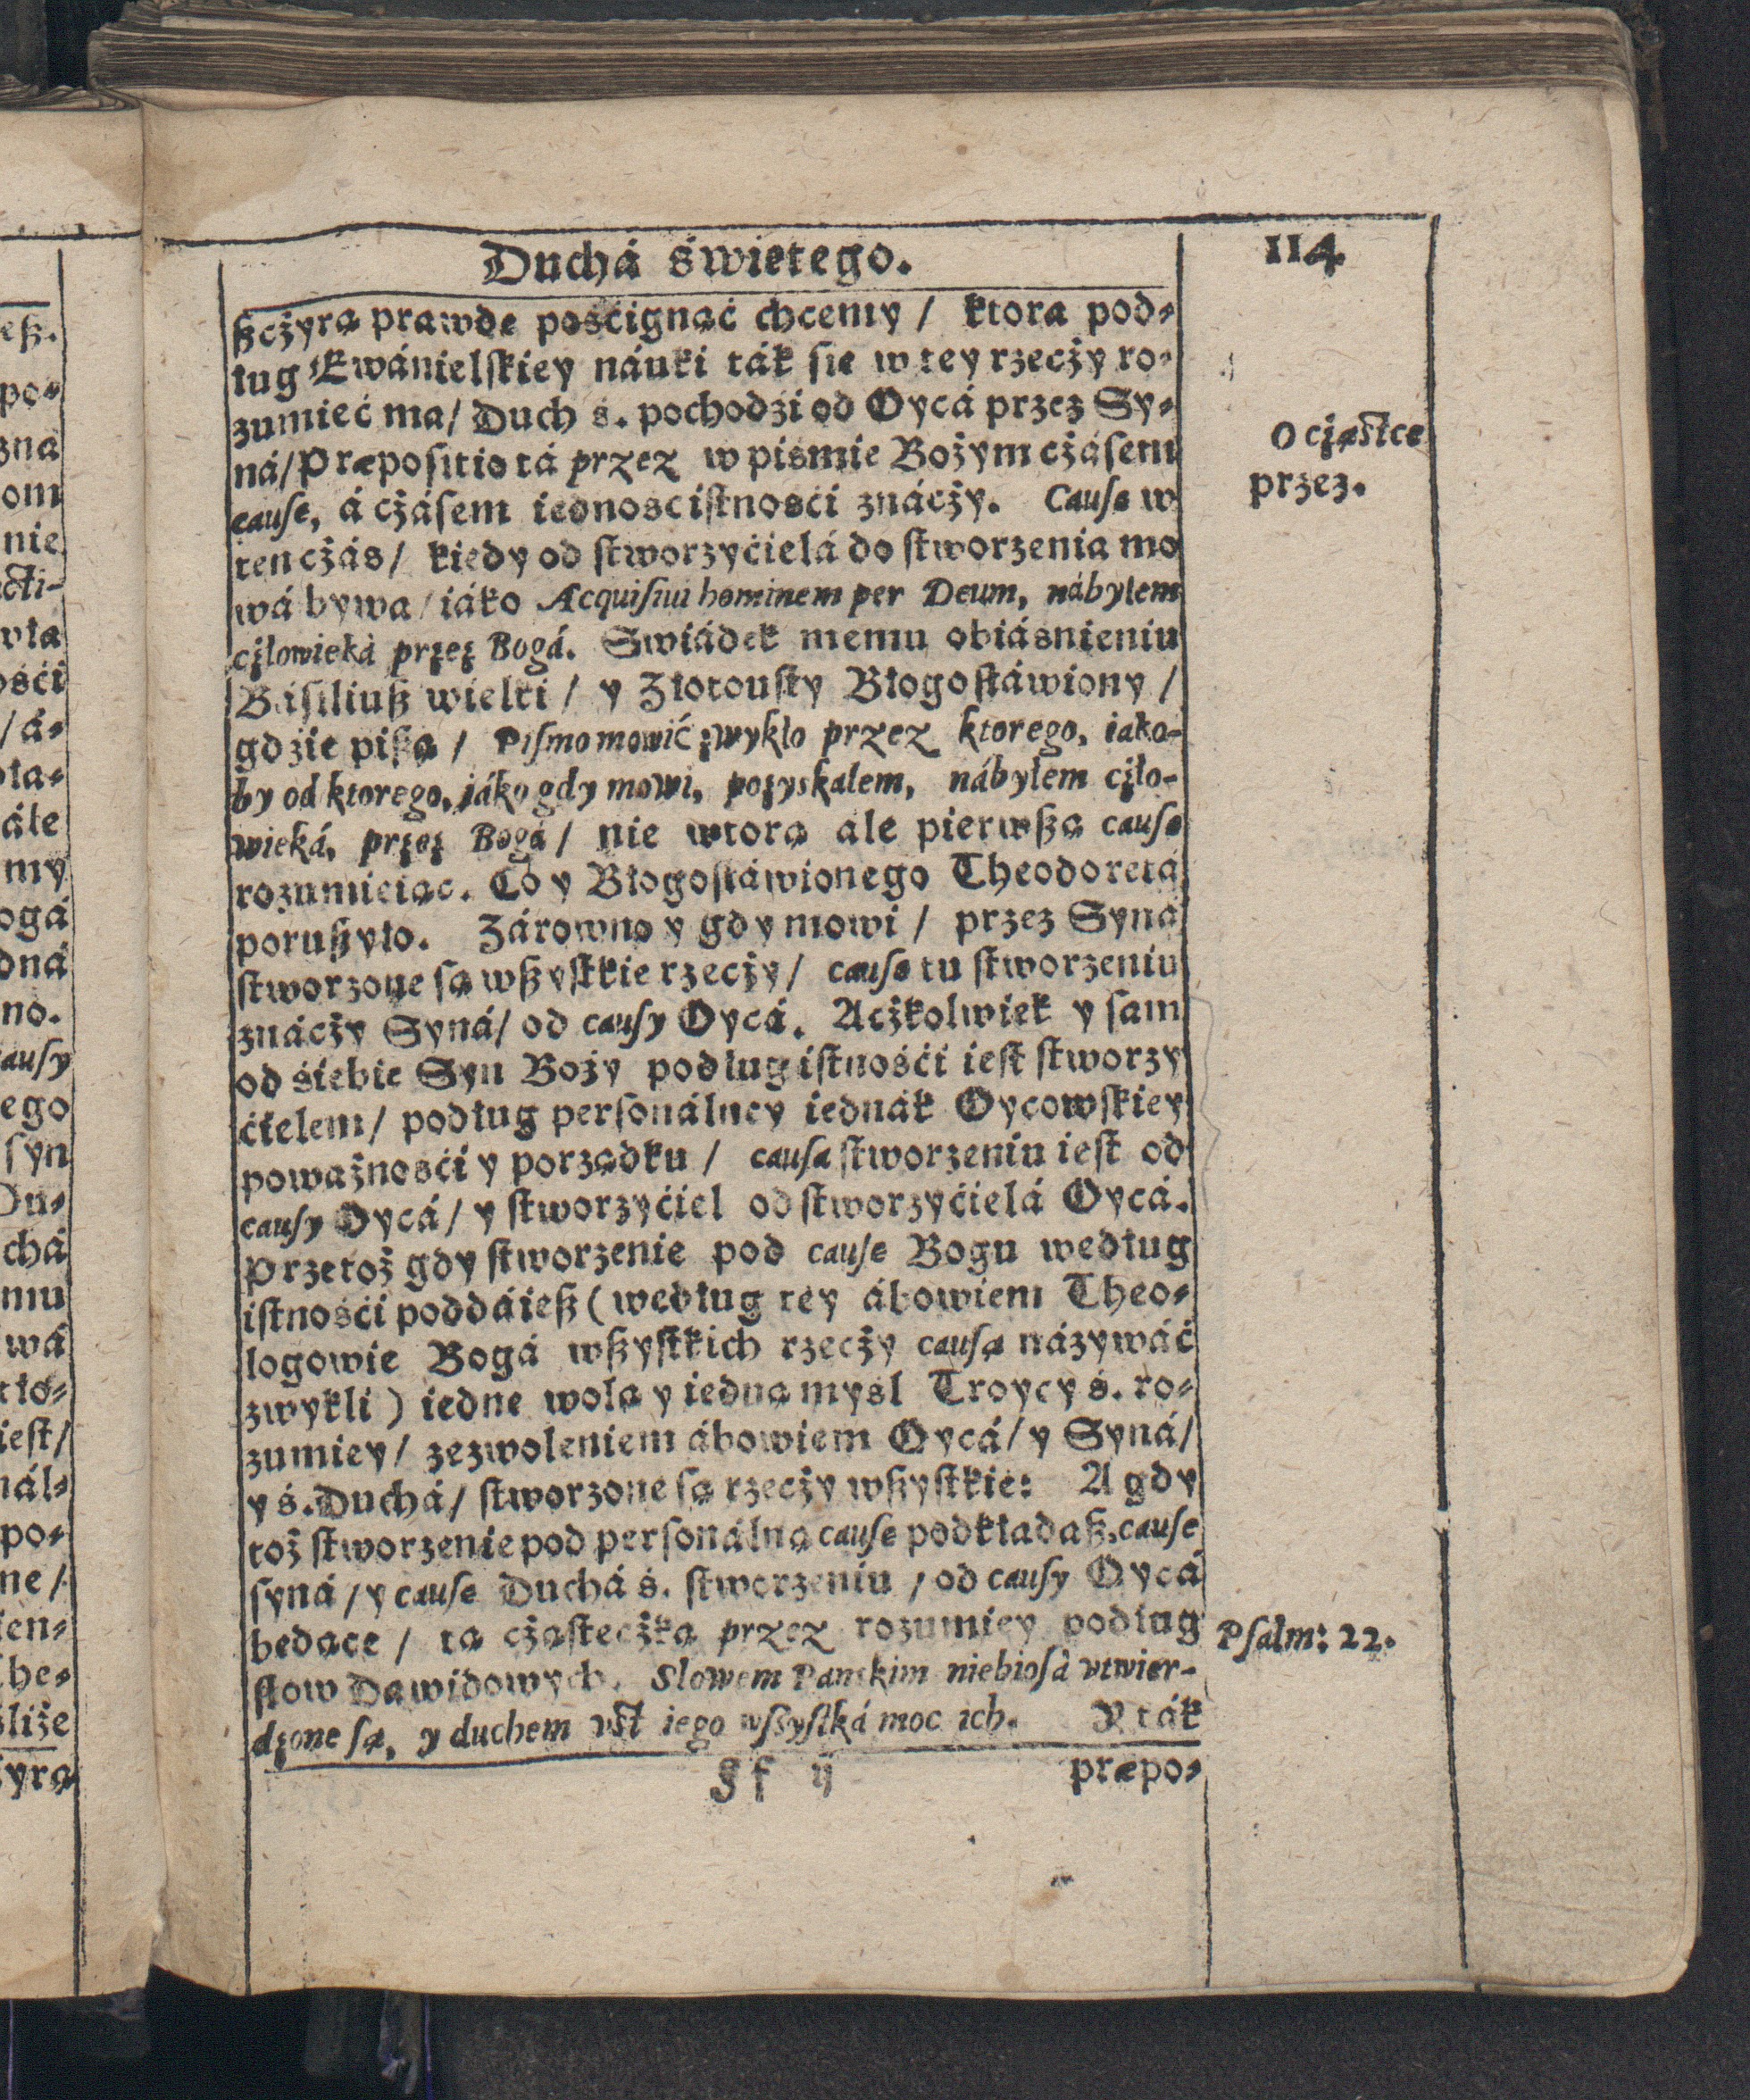 Duchá świetego.
114
ßcżyrą prawdę pośćignąć chcemy / ktora pod-
ług Ewánielſkiey náuki ták ſię w tey rzecży ro-
zumieć ma / Duch ś. pochodźi od Oycá przez Sy-
ná / Præpoſitio tá przez w piśmie Bożym cżáſem
O cząſtce
cauſę, á cżáſem iednosć iſtnośći znácży. Cauſę w
przez.
ten cżás / kiedy od ſtworzyćielá do ſtworzenia mo
wá bywa / iáko Acquiſiui hominem per Deum, nábyłem
człowieká przez Bogá. Swiádek memu obiáśnieniu
Báſiliuß wielki / y Złotouſty Błogoſłáwiony /
gdźie pißą / Piſmo mowić zwykło przez ktorego, iako-
by od ktorego, iáko gdy mowi, pozyskałem, nábyłem czło-
wieká, przez Bogá / nie wtorą ale pierwßą cauſę
rozumieiąc. Co y Błogoſłáwionego Theodoretá
porußyło. Zárowno y gdy mowi / przez Syná
ſtworzone ſą wßyſtkie rzecży / cauſę tu ſtworzeniu
znácży Syná / od cauſy Oycá. Acżkolwiek y ſam
od śiebie Syn Boży podług iſtnośći ieſt ſtworzy
ćielem / podług perſonálney iednák Oycowſkiey
poważnośći y porządku / cauſa ſtworzeniu ieſt od
cauſy Oycá / y ſtworzyćiel od ſtworzyćielá Oycá.
Przetoż gdy ſtworzenie pod cauſę Bogu według
iſtnośći poddáieß (według tey ábowiem Theo-
logowie Bogá wßyſtkich rzecży cauſą názywáć
zwykli) iednę wolą y iedną myśl Troycy ś. ro-
zumiey / zezwoleniem ábowiem Oycá / y Syná /
y ś. Duchá / ſtworzone ſą rzecży wßyſtkie: A gdy
toż ſtworzenie pod perſonálną cauſę podkładaß, cauſę
ſyná / y cauſę Duchá ś. ſtworzeniu / od cauſy Oycá
będące / tą cżąſtecżką przez rozumiey podług
Pſalm: 22.
ſłow Dawidowych. Słowem Pańskim niebioſá vtwier-
dzone ſą, y duchem vſt iego wſzyſtká moc ich. Y ták
Ff ij
præpo-